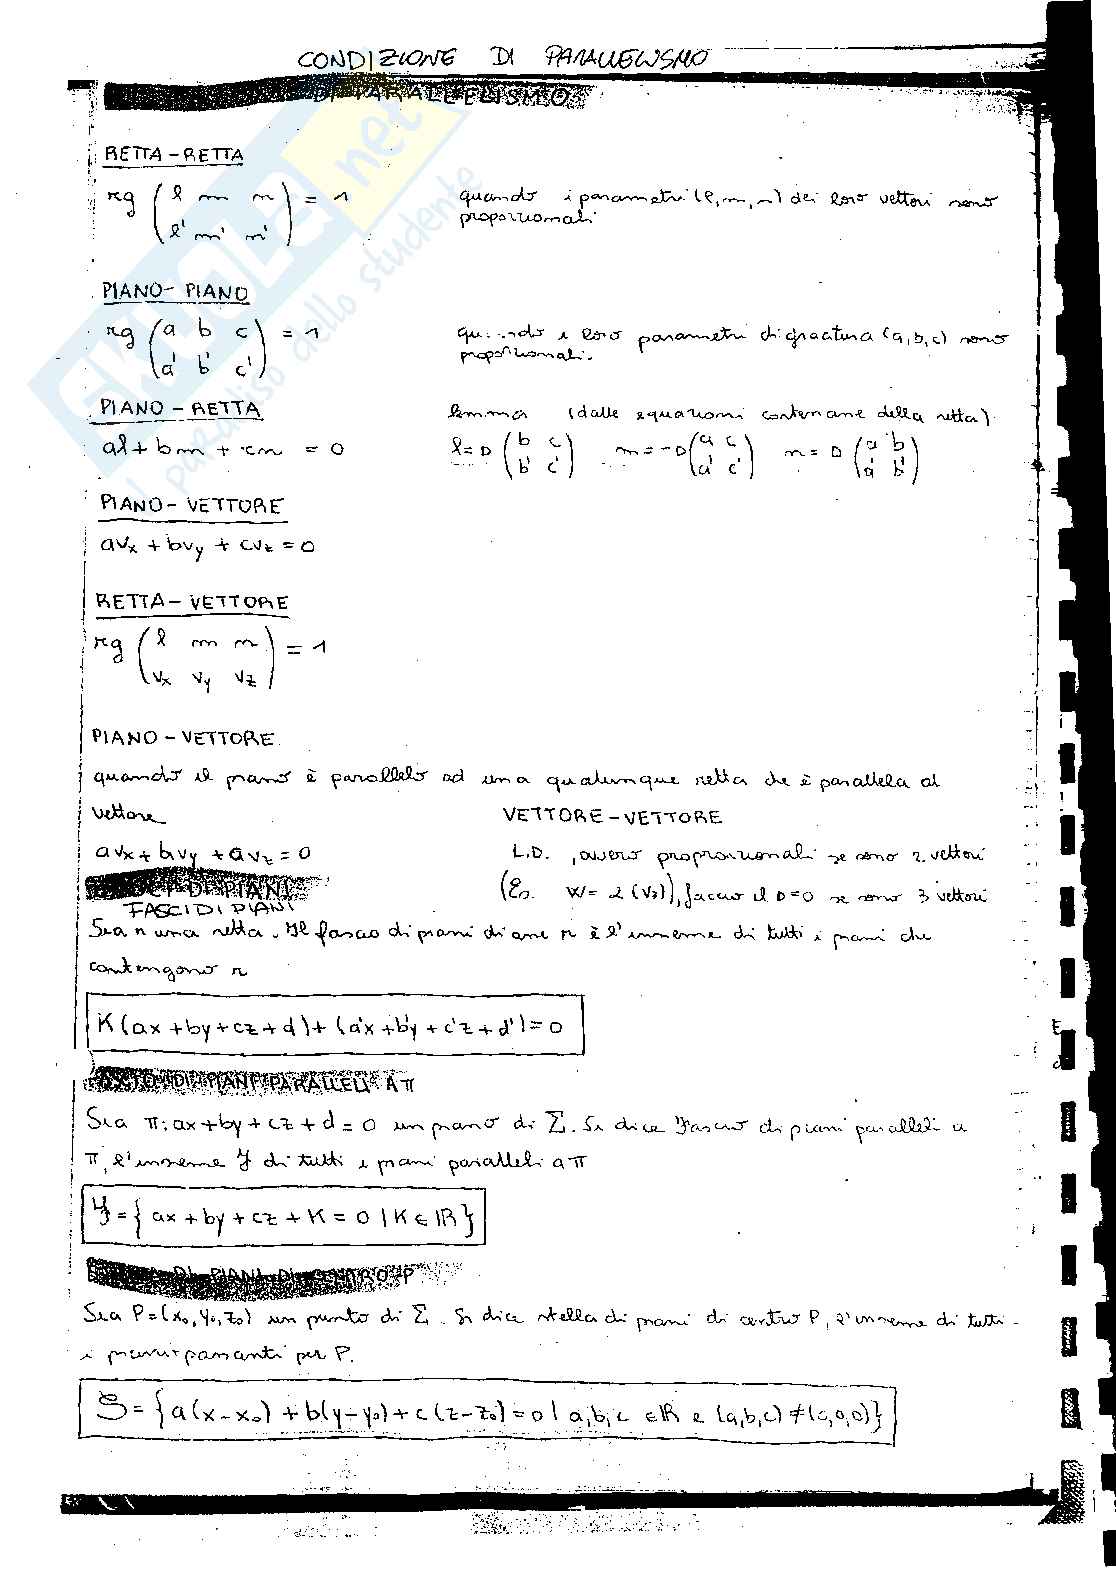 CONDIZIONE DI PARALLELISMO
DI PARALLELISMO
RETTA-RETTA
rg ( l m n ) = 1 quando i parametri (l, m, n) dei loro vettori sono
( l' m' n' ) proporzionali
PIANO-PIANO
rg ( a b c ) = 1 loro parametri di giacitura (a, b, c) sono
( a' b' c' ) proporzionali.
PIANO-RETTA lemma (dalle equazioni cartesiane della retta)
al + bm + cn = 0 l = D ( b c ) m = -D ( a c ) n = D ( a b )
( b' c' ) ( a' c' ) ( a' b' )
PIANO-VETTORE
avx + bvy + cvz = 0
RETTA-VETTORE
rg ( l m n ) = 1
( vx vy vz )
PIANO-VETTORE
quando il piano è parallelo ad una qualunque retta che è parallela al
vettore
VETTORE-VETTORE
avx + bvy + avz = 0 L.D., ovvero proporzionali se sono 2 vettori
DI PIANI (Es. W = 2 (V2)), faccio il D=0 se sono 3 vettori
FASCI DI PIANI
Sia r una retta. Il fascio di piani di asse r è l'insieme di tutti i piani che
contengono r
K(ax+by+cz+d)+(a'x+b'y+c'z+d')=0
DI PIANI PARALLELI A π
Sia π: ax+by+cz+d=0 un piano di Σ. Si dice fascio di piani paralleli a
π, l'insieme F di tutti i piani paralleli a π
F={ax+by+cz+K=0 | K∈ℝ}
DI PIANI DI CENTRO P
Sia P=(x0,y0,z0) un punto di Σ. Si dice stella di piani di centro P, l'insieme di tutti
i piani passanti per P.
S={a(x-x0)+b(y-y0)+c(z-z0)=0 | a,b,c ∈ℝ e (a,b,c)≠(0,0,0)}
SKUOLA.net
il paradiso dello studente